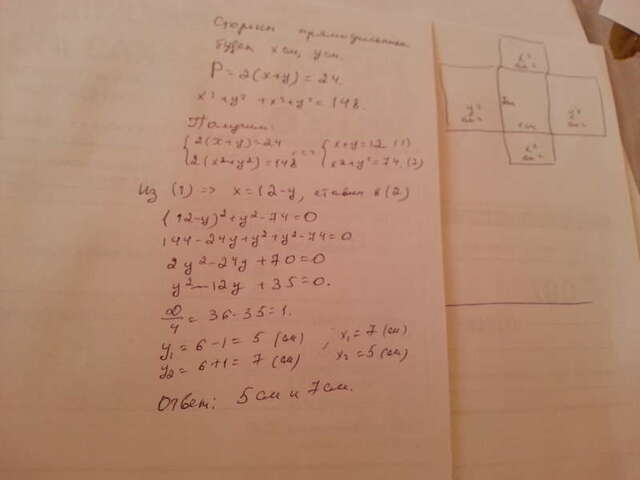 Стороны прямоугольника
будет x см, y см.
P = 2(x+y) = 24.
x² + y² + x² + y² = 148.
Получим:
{ 2(x+y) = 24
{ 2(x²+y²) = 148
<=> { x+y = 12 (1)
{ x²+y² = 74. (2)
Из (1) => x = 12-y, ставим в (2)
(12-y)² + y² - 74 = 0
144 - 24y + y² + y² - 74 = 0
2y² - 24y + 70 = 0
y² - 12y + 35 = 0.
D/4 = 36 - 35 = 1.
y₁ = 6-1 = 5 (см) ; x₁ = 7 (см)
y₂ = 6+1 = 7 (см) x₂ = 5 (см)
Ответ: 5 см и 7 см.
x²
y²
x см
x²